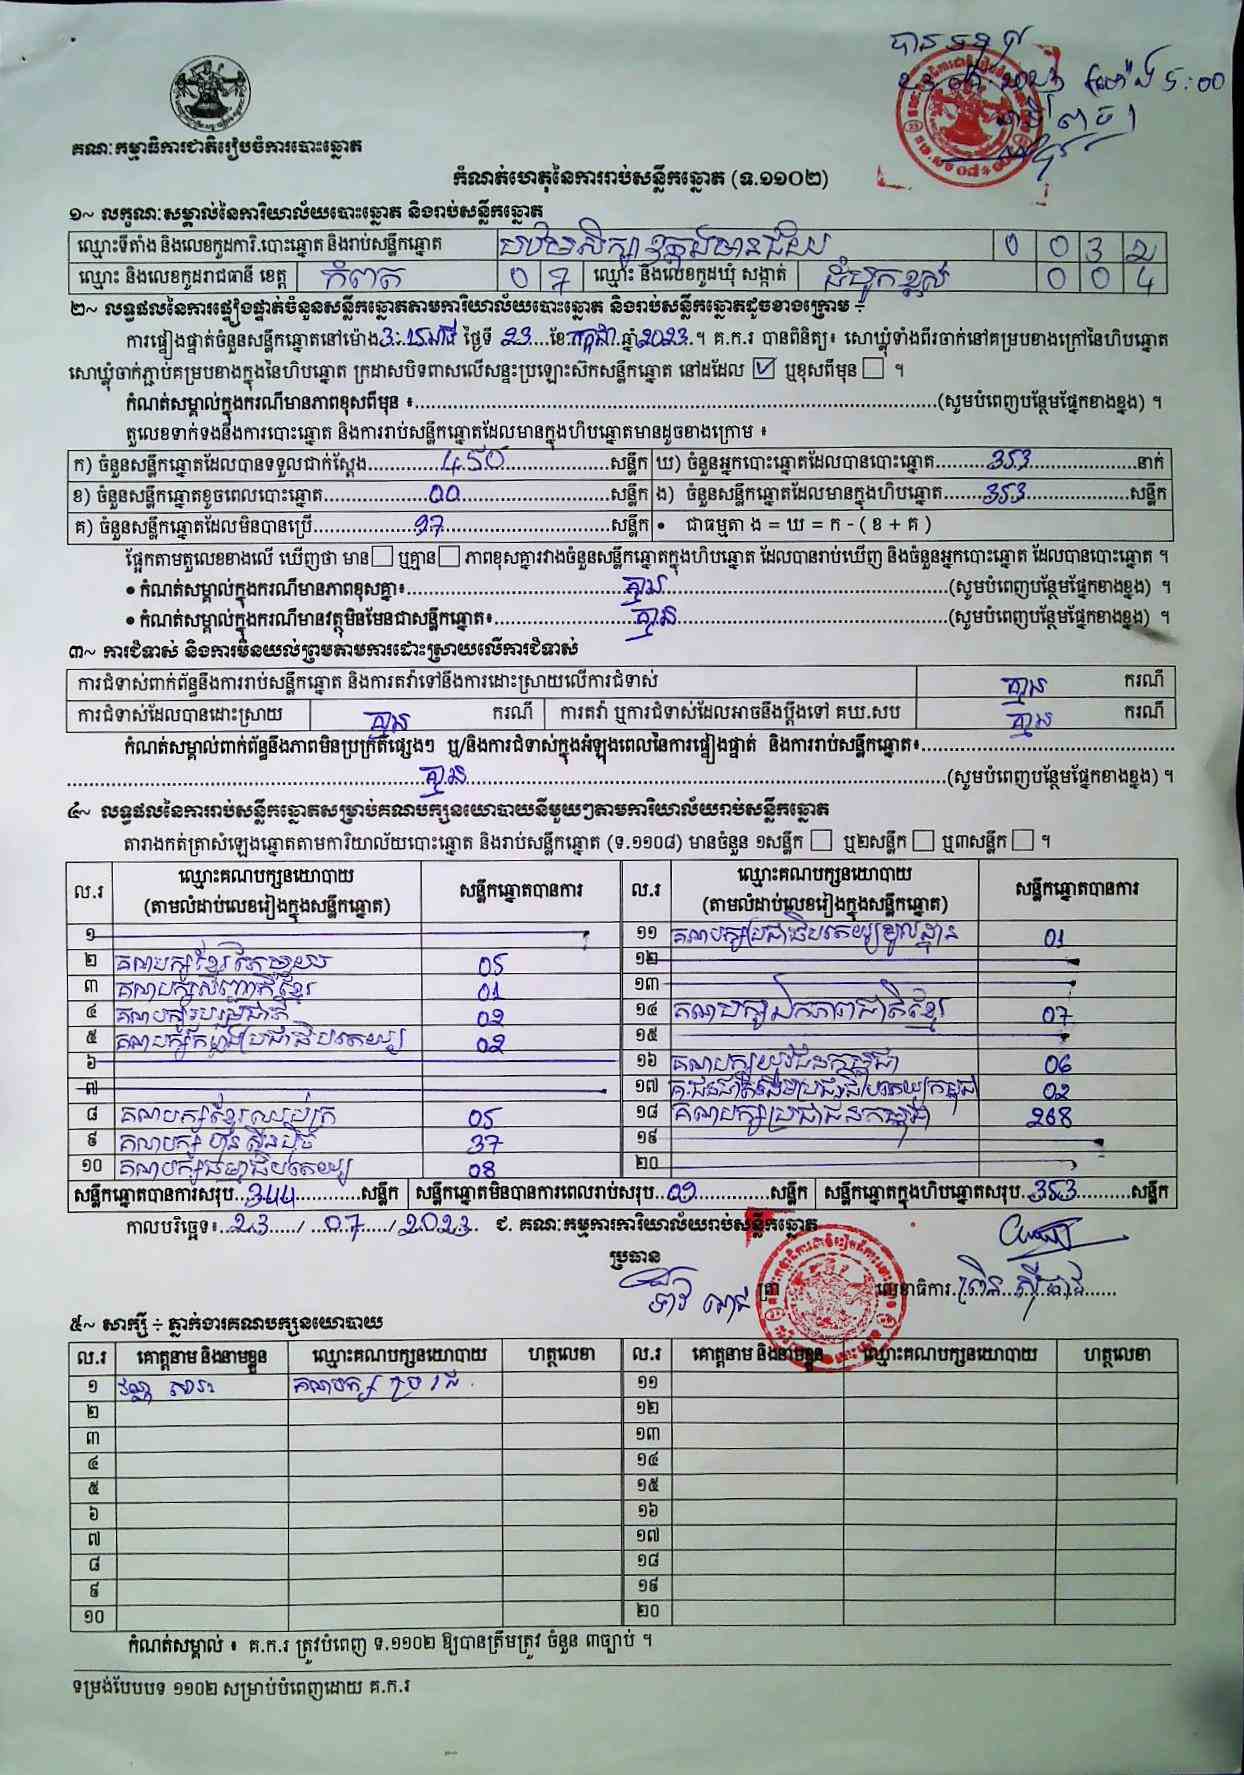 បានទទួល
ម៉ោង 5:00
គណៈកម្មាធិការជាតិរៀបចំការបោះឆ្នោត
កំណត់ហេតុនៃការរាប់សន្លឹកឆ្នោត (ទ.១១០២)
១~ លក្ខណៈសម្គាល់នៃការិយាល័យបោះឆ្នោត និងរាប់សន្លឹកឆ្នោត
ឈ្មោះទីតាំង និងលេខកូដការិ.បោះឆ្នោត និងរាប់សន្លឹកឆ្នោត 0 0 3 2
ឈ្មោះ និងលេខកូដរាជធានី ខេត្ត កំពត 0 7 ឈ្មោះ និងលេខកូដឃុំ សង្កាត់ 0 0 4
២~ លទ្ធផលនៃការផ្ទៀងផ្ទាត់ចំនួនសន្លឹកឆ្នោតតាមការិយាល័យបោះឆ្នោត និងរាប់សន្លឹកឆ្នោតដូចខាងក្រោម ÷
ការផ្ទៀងផ្ទាត់ចំនួនសន្លឹកឆ្នោតនៅម៉ោង 3:15នាទី ថ្ងៃទី 23 ខែ កក្កដា ឆ្នាំ 2023 ។ គ.ក.រ បានពិនិត្យ៖ សោឃ្លុំទាំងពីរចាក់នៅគម្របខាងក្រៅនៃហិបឆ្នោត
សោឃ្លុំចាក់ភ្ជាប់គម្របខាងក្នុងនៃហិបឆ្នោត ក្រដាសបិទពាសលើសន្ទះប្រឡោះស៊កសន្លឹកឆ្នោត នៅដដែល ☑ ឬខុសពីមុន ☐ ។
កំណត់សម្គាល់ក្នុងករណីមានភាពខុសពីមុន ៖ (សូមបំពេញបន្ថែមផ្នែកខាងខ្នង) ។
តួលេខទាក់ទងនឹងការបោះឆ្នោត និងការរាប់សន្លឹកឆ្នោតដែលមានក្នុងហិបឆ្នោតមានដូចខាងក្រោម ៖
ក) ចំនួនសន្លឹកឆ្នោតដែលបានទទួលជាក់ស្តែង 450 សន្លឹក ឃ) ចំនួនអ្នកបោះឆ្នោតដែលបានបោះឆ្នោត 353 នាក់
ខ) ចំនួនសន្លឹកឆ្នោតខូចពេលបោះឆ្នោត 00 សន្លឹក ង) ចំនួនសន្លឹកឆ្នោតដែលមានក្នុងហិបឆ្នោត 353 សន្លឹក
គ) ចំនួនសន្លឹកឆ្នោតដែលមិនបានប្រើ 97 សន្លឹក • ជាធម្មតា ង = ឃ = ក - ( ខ + គ )
ផ្អែកតាមតួលេខខាងលើ ឃើញថា មាន ☐ ឬគ្មាន ☐ ភាពខុសគ្នារវាងចំនួនសន្លឹកឆ្នោតក្នុងហិបឆ្នោត ដែលបានរាប់ឃើញ និងចំនួនអ្នកបោះឆ្នោត ដែលបានបោះឆ្នោត ។
• កំណត់សម្គាល់ក្នុងករណីមានភាពខុសគ្នា៖ គ្មាន (សូមបំពេញបន្ថែមផ្នែកខាងខ្នង) ។
• កំណត់សម្គាល់ក្នុងករណីមានវត្ថុមិនមែនជាសន្លឹកឆ្នោត៖ គ្មាន (សូមបំពេញបន្ថែមផ្នែកខាងខ្នង) ។
៣~ ការជំទាស់ និងការមិនយល់ព្រមតាមការដោះស្រាយលើការជំទាស់
ការជំទាស់ពាក់ព័ន្ធនឹងការរាប់សន្លឹកឆ្នោត និងការតវ៉ាទៅនឹងការដោះស្រាយលើការជំទាស់ គ្មាន ករណី
ការជំទាស់ដែលបានដោះស្រាយ គ្មាន ករណី ការតវ៉ា ឬការជំទាស់ដែលអាចនឹងប្តឹងទៅ គឃ.សប គ្មាន ករណី
កំណត់សម្គាល់ពាក់ព័ន្ធនឹងភាពមិនប្រក្រតីផ្សេងៗ ឬ/និងការជំទាស់ក្នុងអំឡុងពេលនៃការផ្ទៀងផ្ទាត់ និងការរាប់សន្លឹកឆ្នោត៖
គ្មាន (សូមបំពេញបន្ថែមផ្នែកខាងខ្នង) ។
៤~ លទ្ធផលនៃការរាប់សន្លឹកឆ្នោតសម្រាប់គណបក្សនយោបាយនីមួយៗតាមការិយាល័យរាប់សន្លឹកឆ្នោត
តារាងកត់ត្រាសំឡេងឆ្នោតតាមការិយាល័យបោះឆ្នោត និងរាប់សន្លឹកឆ្នោត (ទ.១១០៨) មានចំនួន ១សន្លឹក ☐ ឬ២សន្លឹក ☐ ឬ៣សន្លឹក ☐ ។
ល.រ ឈ្មោះគណបក្សនយោបាយ (តាមលំដាប់លេខរៀងក្នុងសន្លឹកឆ្នោត) សន្លឹកឆ្នោតបានការ ល.រ ឈ្មោះគណបក្សនយោបាយ (តាមលំដាប់លេខរៀងក្នុងសន្លឹកឆ្នោត) សន្លឹកឆ្នោតបានការ
១ ១១ គណបក្សប្រជាធិបតេយ្យមូលដ្ឋាន 01
២ គណបក្សខ្មែរតែមួយ 05 ១២
៣ គណបក្សសញ្ជាតិខ្មែរ 01 ១៣
៤ គណបក្សរួបរួមជាតិ 02 ១៤ គណបក្សឯកភាពជាតិខ្មែរ 07
៥ គណបក្សកម្លាំងប្រជាធិបតេយ្យ 02 ១៥
៦ ១៦ គណបក្សយុវជនកម្ពុជា 06
៧ ១៧ គ.ជនជាតិដើមប្រជាធិបតេយ្យកម្ពុជា 02
៨ គណបក្សខ្មែរឈប់ក្រ 05 ១៨ គណបក្សប្រជាជនកម្ពុជា 268
៩ គណបក្ស ហ៊្វុនស៊ិនប៉ិច 37 ១៩
១០ គណបក្សធម្មាធិបតេយ្យ 08 ២០
សន្លឹកឆ្នោតបានការសរុប 344 សន្លឹក សន្លឹកឆ្នោតមិនបានការពេលរាប់សរុប 09 សន្លឹក សន្លឹកឆ្នោតក្នុងហិបឆ្នោតសរុប 353 សន្លឹក
កាលបរិច្ឆេទ៖ 23 / 07 / 2023 ជ. គណៈកម្មការការិយាល័យរាប់សន្លឹកឆ្នោត
ប្រធាន
ត្រា លេខាធិការ
៥~ សាក្សី ÷ ភ្នាក់ងារគណបក្សនយោបាយ
ល.រ គោត្តនាម និងនាមខ្លួន ឈ្មោះគណបក្សនយោបាយ ហត្ថលេខា ល.រ គោត្តនាម និងនាមខ្លួន ឈ្មោះគណបក្សនយោបាយ ហត្ថលេខា
១ គណបក្ស ១១
២ ១២
៣ ១៣
៤ ១៤
៥ ១៥
៦ ១៦
៧ ១៧
៨ ១៨
៩ ១៩
១០ ២០
កំណត់សម្គាល់ ៖ គ.ក.រ ត្រូវបំពេញ ទ.១១០២ ឱ្យបានត្រឹមត្រូវ ចំនួន ៣ច្បាប់ ។
ទម្រង់បែបបទ ១១០២ សម្រាប់បំពេញដោយ គ.ក.រ